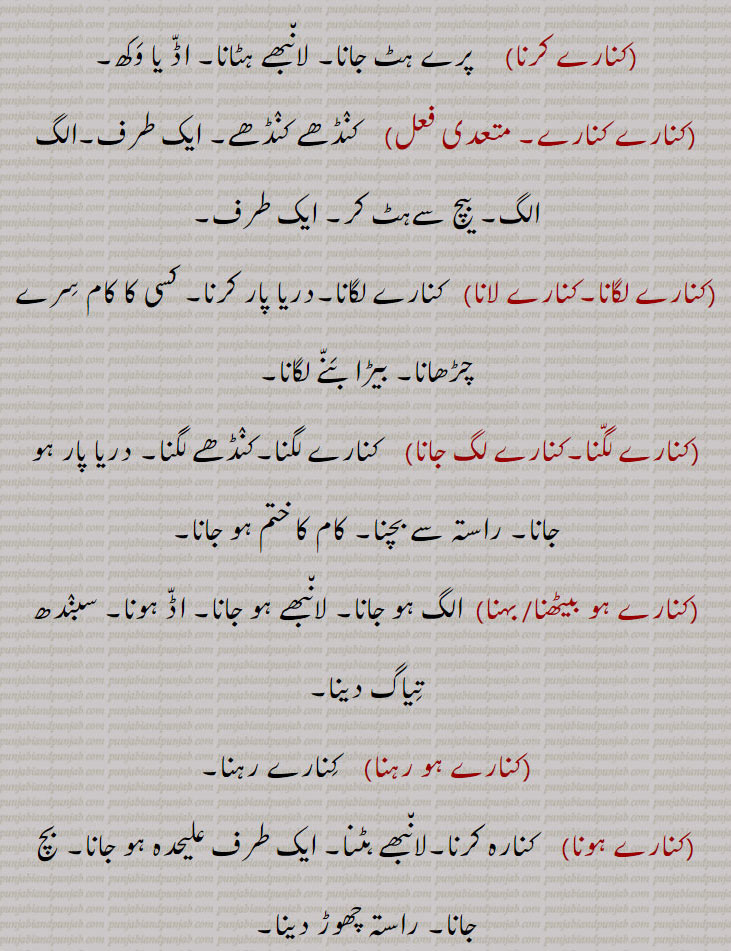 (کنارے کرنا) پرے ہٹ جانا۔ لانّبھے ہٹانا۔ اڈّ یا وَکھ۔
(کنارے کنارے۔ متعدی فعل) کنْڈھے کنْڈھے۔ ایک طرف۔الگ
الگ۔ بیچ سےہٹ کر۔ ایک طرف۔
(کنارے لگانا۔کنارے لانا) کنارے لگانا۔دریا پار کرنا۔ کسی کا کام سِرے
چڑھانا۔ بیڑا بَنّے لگانا۔
(کنارے لگّنا۔کنارے لگ جانا) کنارے لگنا۔کنْڈھے لگنا۔ دریا پار ہو
جانا۔ راستہ سے بچنا۔ کام کا ختم ہو جانا۔
(کنارے ہو بیٹھنا/بہنا) الگ ہو جانا۔ لانّبھے ہو جانا۔ اڈّ ہونا۔ سبنْدھ
تِیاگ دینا۔
(کنارے ہو رہنا) کِنارے رہنا۔
(کنارے ہونا) کنارہ کرنا۔لانّبھے ہٹنا۔ ایک طرف علیحدہ ہو جانا۔ بچ
جانا۔ راستہ چھوڑ دینا۔